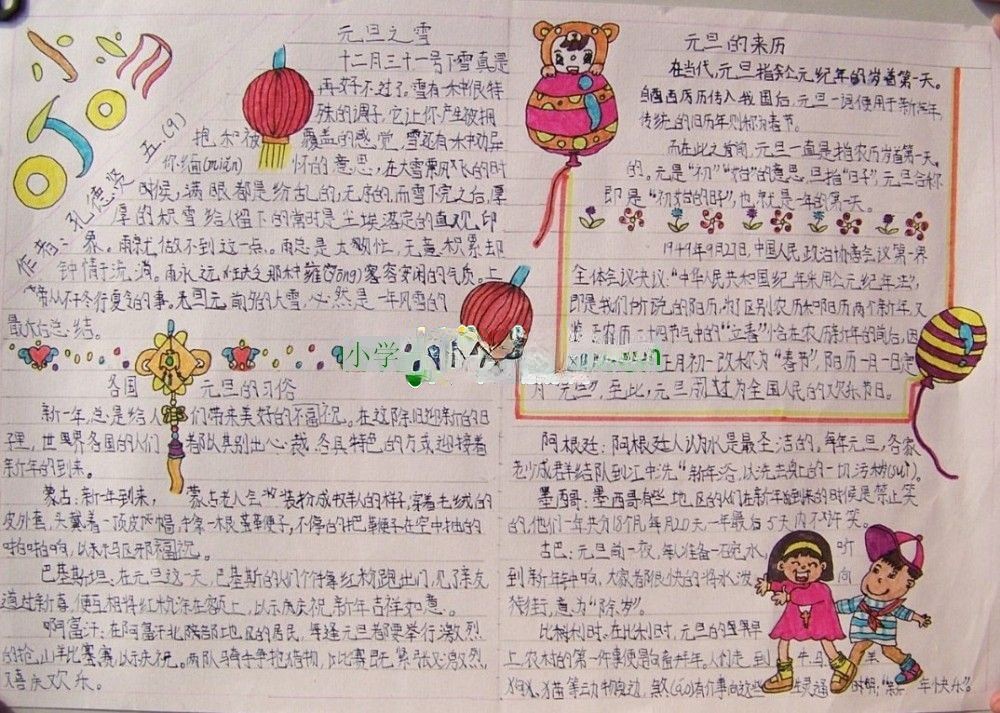 小
五.(9)
作者:孔德贤
元旦之雪
十二月三十一号下雪真是
再好不过了,雪有一种很特
殊的调子,它让你产生被拥
抱和被覆盖的感觉,雪还有一种劝导
你缅(miǎn)怀的意思,在大雪乘风飞的时
时候,满眼都是纷乱的,无序的,而雪下完之后,厚
厚的积雪给人留下的常时是尘埃落定的直观,印
界。雨就做不到这一点。雨总是太匆忙,无意积累却
钟情于流淌。雨永远
容安闲的气质。上
帝从不在冬行夏令的事。
元前夕的大雪,必然是一年风雪的
最大总结。
各国元旦的习俗
新一年,总是给人们带来美好的祝福。在这除旧迎新的日
子里,世界各国的人们都以其别出心裁、各具特色的方式迎接着
新年的到来。
蒙古:新年到来,蒙古老人会装扮成牧羊人的样子,穿着毛绒的
皮外套,头戴着一顶皮帽,手拿一根鞭子,不停的把鞭子在空中抽的
啪啪响,以示驱邪祝福。
巴基斯坦:在元旦这一天,巴基斯的人们个个拿红粉跑出门,见了亲友
道过新喜,便互相将红粉涂在额上,以示庆祝新年吉祥如意。
啊富汗:在阿富汗北部地区的居民,每逢元旦都要举行激烈
的抢山羊比赛,以示庆祝。两队骑手争抢猎物,比赛既紧张又激烈,
又喜庆欢乐。
元旦的来历
在当代,元旦指公元纪年的岁首第一天。
自西历传入我国后,元旦一词便用于新年,
传统的旧历年则称为春节。
而在此之前,元旦一直是指农历岁首第一天
的。元是“初”“始”的意思,旦指“日子”,元旦合称
即是“初始的日子”,也就是一年的第一天。
1949年9月27日,中国人民政治协商会议第一届
全体会议决议:“中华人民共和国纪年采用公元纪年法”,
即是我们所说的阳历,为了区别农历和阳历两个新年,又
鉴于农历二十四节气中的“立春”恰在农历新年的前后,因
正月初一改称为“春节”,阳历一月一日定
为“元旦”,至此,元旦成为全国人民的欢乐节日。
小学
阿根廷:阿根廷人认为水是最圣洁的。每年元旦,各家
老少成群结队到江中洗“新年浴,以洗去身上的一切污秽(suì)。
墨西哥:墨西哥有些地区的人们在新年到来的时候是禁止笑
的,他们一年共分18个月,每月20天,一年最后5天内不许笑。
古巴:元旦前一夜,每人准备一碗水,听
到新年钟响,大家都很快的将水泼向
街,意为“除岁”。
比利时:在比利时,元旦的早
上,农村的第一件事便是向畜拜年。人们走到牛、马、羊
狗、猫等动物身边,煞(shà)有介事向这些生灵通明:“新年快乐”。